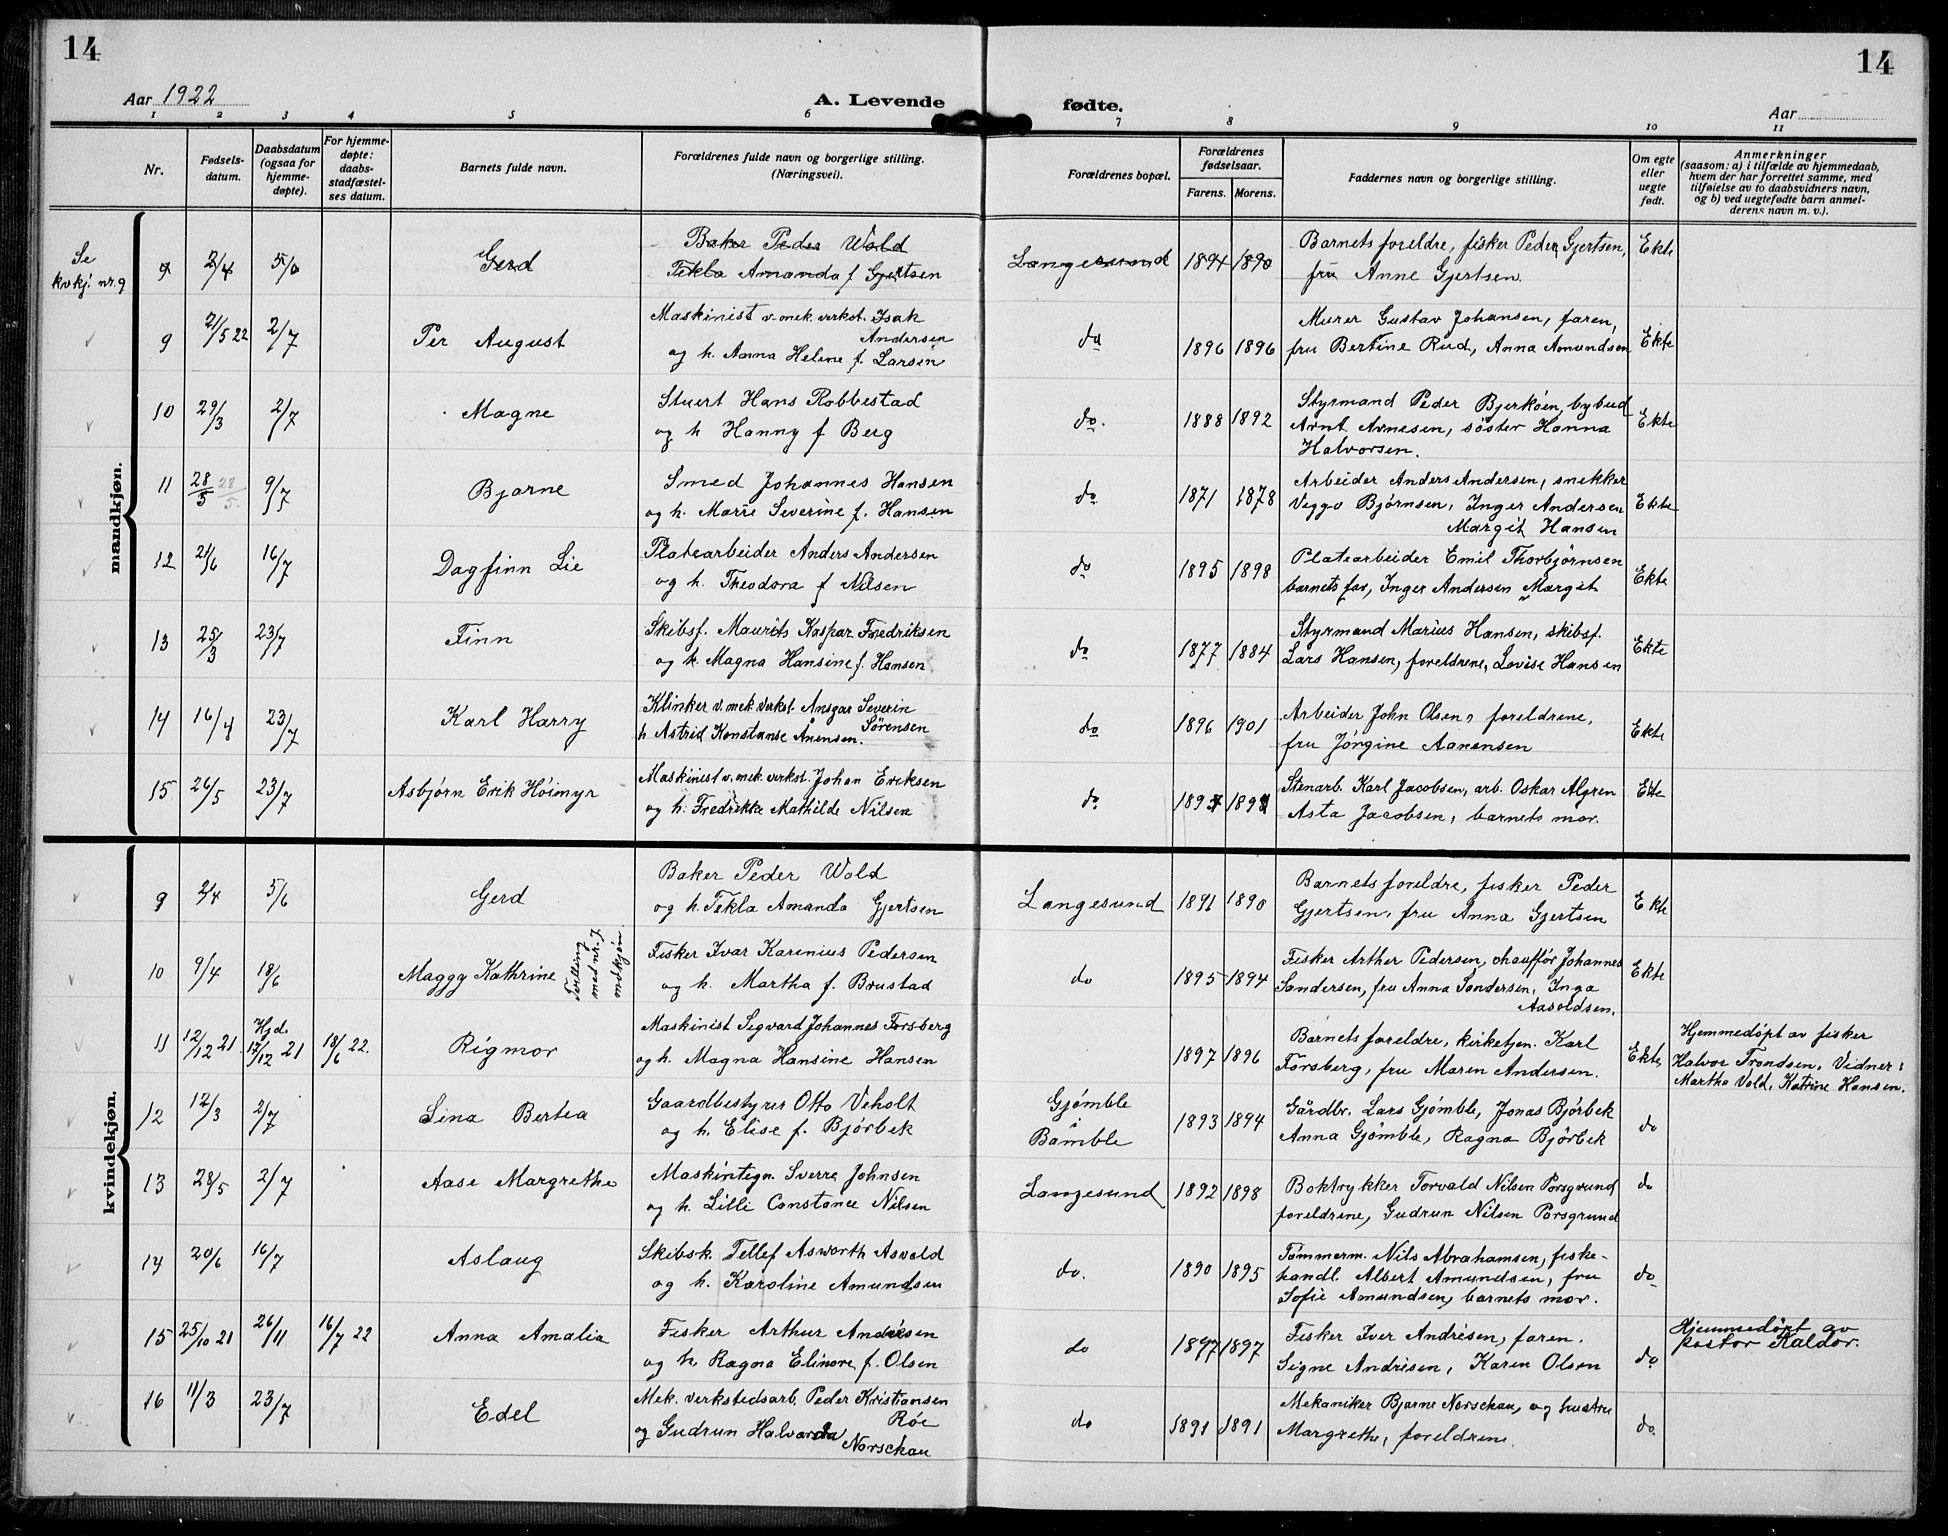 14
14
Aar 1922
A. Levende fødte.
Aar
1 2 3 4 5 6 7 8 9 10 11
Nr.
Fødsels-
datum.
Daabsdatum
(ogsaa for
hjemme-
døpte).
For hjemme-
døpte:
daabs-
stadfæstel-
ses datum.
Barnets fulde navn.
Forældrenes fulde navn og borgerlige stilling.
(Næringsvei).
Forældrenes bopæl.
Forældrenes
fødselsaar.
Farens. Morens.
Faddernes navn og borgerlige stilling.
Om egte
eller
uegte
født.
Anmerkninger
(saasom: a) i tilfælde av hjemmedaab,
hvem der har forrettet samme, med
tilføielse av to daabsvidners navn,
og b) ved uegtefødte barn anmel-
derens navn m. v.).
mandkjøn.
Se
kvkj. nr. 9
9 2/4 5/6 Gerd
Baker Peder Wold
Tekla Amanda f. Gjertsen
Langesund 1891 1890
Barnets foreldre, fisker Peder Gjertsen,
fru Anne Gjertsen.
Ekte
9 21/5 22 2/7 Per August
Maskinist v. mek. verkst. Isak
Andersen
og h. Anna Helene f. Larsen
do 1896 1896
Murer Gustav Johansen, faren,
fru Bertine Rud, Anna Amundsen
Ekte
10 29/3 2/7 Magne
Stuert Hans Robbestad
og h Hanny f Berg
do. 1888 1892
Styrmand Peder Bjerkøen, bybud
Arnt Arnesen, søster Hanna
Halvorsen.
Ekte
11 28/5 28/5. 9/7 Bjarne
Smed Johannes Hansen
og h. Marie Severine f. Hansen
do 1871 1878
Arbeider Anders Andersen, snekker
Veggo Bjørnsen, Inger Andersen
Margit Hansen
Ekte
12 21/6 16/7 Dagfinn Lie
Platearbeider Anders Andersen
og h. Theodora f Nilsen
do 1895 1898
Platearbeider Emil Thorbjørnsen
barnets far, Inger Andersen Margit "
Ekte
13 25/3 23/7 Finn
Skibsf. Maurits Kaspar Fredriksen
og h. Magna Hansine f. Hansen
do 1877 1884
Styrmand Marius Hansen, skibsf.
Lars Hansen, foreldrene, Lovise Hansen
Ekte
14 16/4 23/7 Karl Harry
Klinker v. mek. verkst. Ansgar Severin
Sørensen
h Astrid Konstanse Anensen.
do 1896 1901
Arbeider John Olsen, foreldrene,
fru Jørgine Aanensen
Ekte
15 26/5 23/7 Asbjørn Erik Høimyr
Maskinist v. mek. verkst. Johan Eriksen
og h. Fredrikke Mathilde Nilsen
do
Stenarb. Karl Jacobsen, arb. Oskar Algren
Asta Jacobsen, barnets mor.
Ekte
kvindekjøn.
9 2/4 5/6 Gerd
Baker Peder Wold
og h. Tekla Amanda Gjertsen
Langesund 1891 1890
Barnets foreldre, fisker Peder
Gjertsen, fru Anna Gjertsen
Ekte
10 9/4 18/6 Maggy Kathrine
Tvilling
med nr. 7.
mdkjøn
Fisker Ivar Karenius Pedersen
og h. Martha f. Brustad
do 1895 1894
Fisker Arther Pedersen, chauffør Johannes
Sandersen, fru Anna Sandersen, Inga
Aasoldsen.
Ekte
11 12/12 21. Hjd. 17/12 21 18/6 22. Rigmor
Maskinist Sigvard Johannes Forsberg
og h. Magna Hansine Hansen
1897 1896
Barnets foreldre, kirketjen. Karl
Forsberg, fru Maren Andersen.
Ekte
Hjemmedøpt av fisker
Halvor Trondsen. Vidner:
Martha Vold, Katrine Hansen.
12 12/3 2/7 Lina Bertea
Gaardbestyrer Otto Veholt
og h. Elise f. Bjørbek
Gjømble
i
Bamble
1893 1894
Gårdbr. Lars Gjømble, Jonas Bjørbek
Anna Gjømble, Ragna Bjørbek
do
13 28/5 2/7 Aase Margrethe
Maskintegn. Sverre Johnsen
og h. Lilli Constance Nilsen
Langesund 1892 1898
Boktrykker Torvald Nilsen Porsgrund
foreldrene, Gudrun Nilsen Porsgrund
do
14 20/6 16/7 Aslaug
Skibsk. Tellef Asworth Asvald
og h. Karoline Amundsen
do. 1890 1895
Tømmerm. Nils Abrahamsen, fiske-
handl. Albert Amundsen, fru
Sofie Amundsen, barnets mor.
do
15 25/10 21 26/11 16/7 22 Anna Amalia
Fisker Arthur Andrésen
og h. Ragna Elinore f. Olsen
do 1897 1897
Fisker Iver Andrésen, faren.
Signe Andrésen, Karen Olsen
do
Hjemmedøpt av
pastor Kaldor.
16 11/3 23/7 Edel
Mek. verkstedsarb. Peder Kristiansen
Röe
og Gudrun Halvarda
Norschau
do 1891 1891
Mekaniker Bjarne Norschau, og hustru
Margrethe, foreldrene.
do.